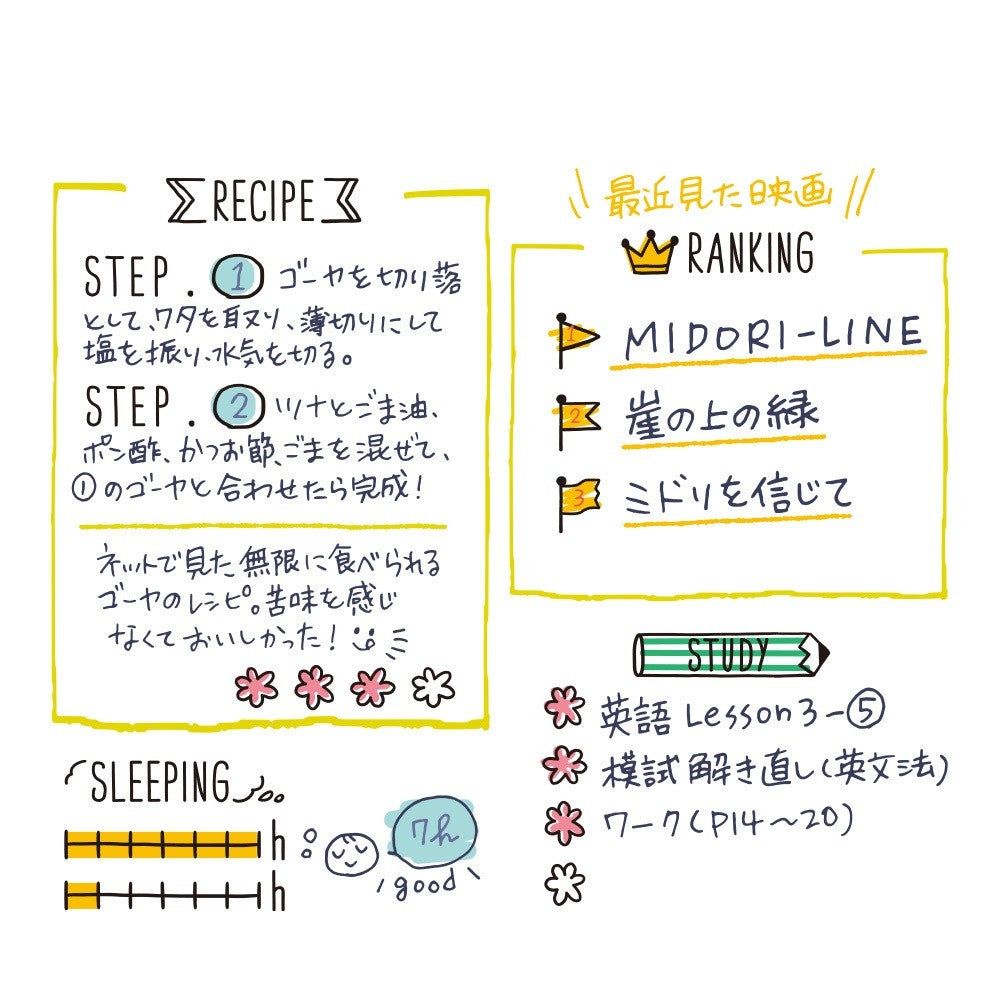 RECIPE
STEP. 1 ゴーヤを切り落
として、ワタを取り、薄切りにして
塩を振り、水気を切る。
STEP. 2 ツナとごま油、
ポン酢、かつお節、ごまを混ぜて、
①のゴーヤと合わせたら完成！
ネットで見た無限に食べられる
ゴーヤのレシピ。苦味を感じ
なくておいしかった！
SLEEPING
h
7h
good
h
最近見た映画
RANKING
1 MIDORI-LINE
2 崖の上の緑
3 ミドリを信じて
STUDY
英語 Lesson3-⑤
模試解き直し(英文法)
ワーク(P14～20)